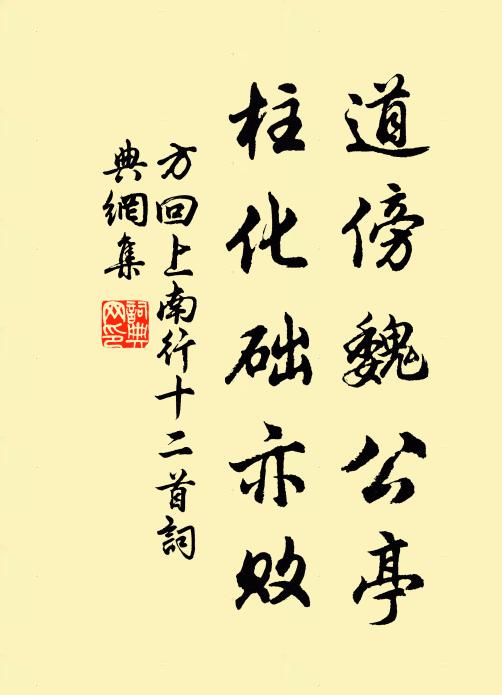 道傍魏公亭
柱化础亦败
方回上南行十二首詞
典網集
詞典網印